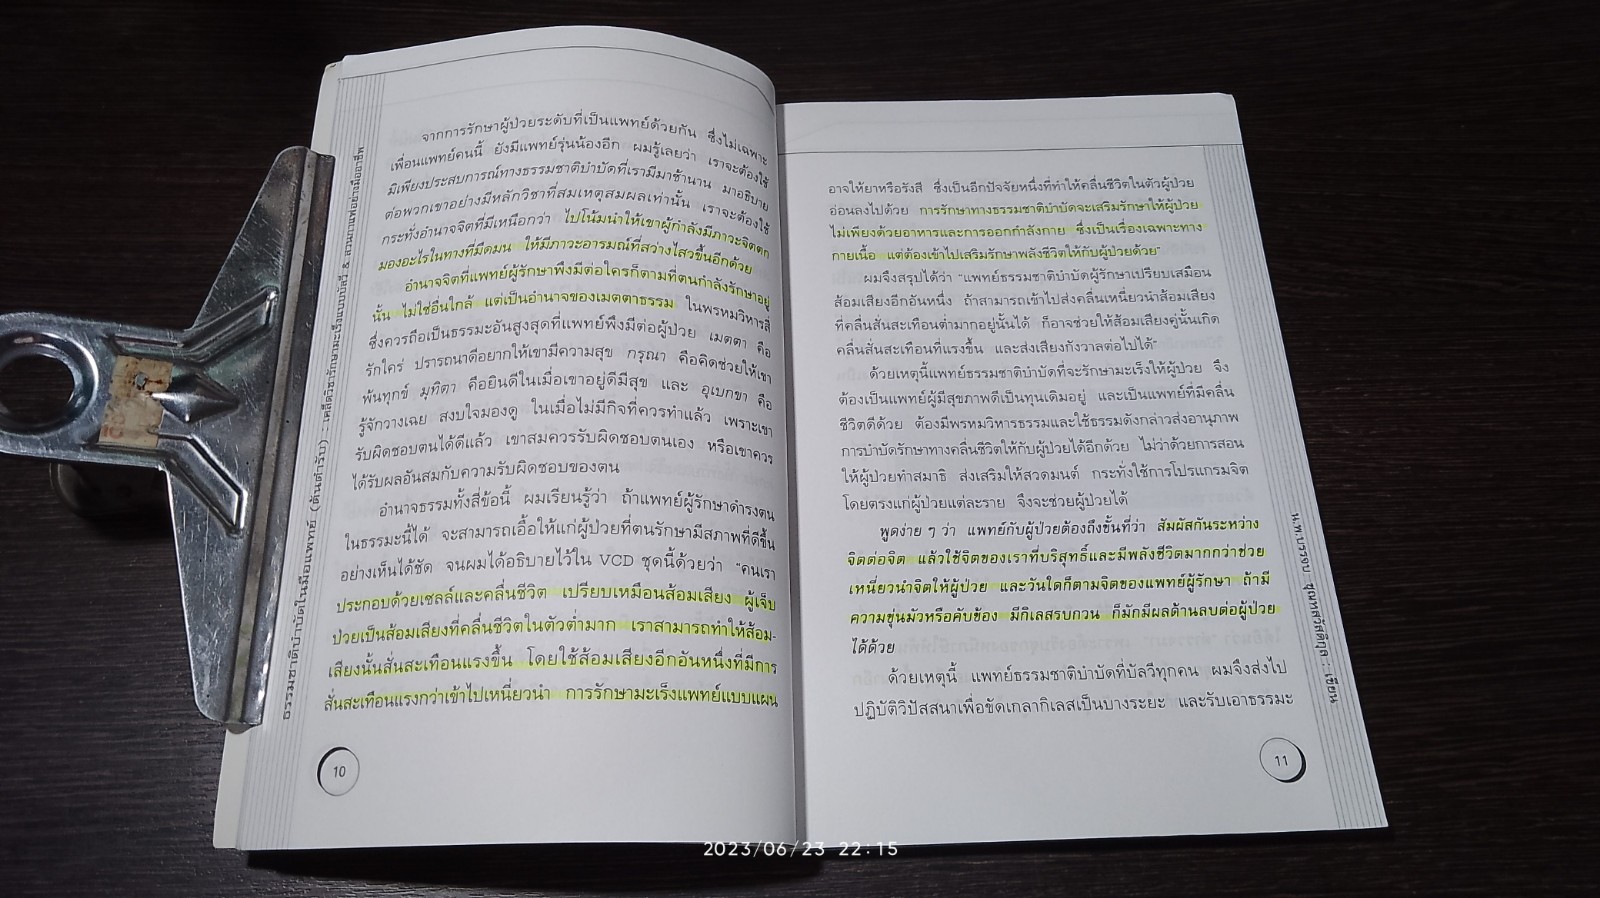 ธรรมชาติบำบัดในมือแพทย์ (ต้นตำรับ) : เคล็ดวิธารักษามะเร็งแบบบัลวี & สวนกาแฟอย่างมืออาชีพ
จากการรักษาผู้ป่วยระดับที่เป็นแพทย์ด้วยกัน ซึ่งไม่เฉพาะ
เพื่อนแพทย์คนนี้ ยังมีแพทย์รุ่นน้องอีก ผมรู้เลยว่า เราจะต้องใช้
มิเพียงประสบการณ์ทางธรรมชาติบำบัดที่เรามีมาช้านาน มาอธิบาย
ต่อพวกเขาอย่างมีหลักวิชาที่สมเหตุสมผลเท่านั้น เราจะต้องใช้
กระทั่งอำนาจจิตที่มีเหนือกว่า ไปโน้มนำให้เขาผู้กำลังมีภาวะจิตตก
มองอะไรในทางที่มืดมน ให้มีภาวะอารมณ์ที่สว่างไสวขึ้นอีกด้วย
อำนาจจิตที่แพทย์ผู้รักษาพึงมีต่อใครก็ตามที่ตนกำลังรักษาอยู่
นั้น ไม่ใช่อื่นใกล้ แต่เป็นอำนาจของเมตตาธรรม ในพรหมวิหารสี่
ซึ่งควรถือเป็นธรรมะอันสูงสุดที่แพทย์พึงมีต่อผู้ป่วย เมตตา คือ
รักใคร่ ปรารถนาดีอยากให้เขามีความสุข กรุณา คือคิดช่วยให้เขา
พ้นทุกข์ มุทิตา คือยินดีในเมื่อเขาอยู่ดีมีสุข และ อุเบกขา คือ
รู้จักวางเฉย สงบใจมองดู ในเมื่อไม่มีกิจที่ควรทำแล้ว เพราะเขา
รับผิดชอบตนได้ดีแล้ว เขาสมควรรับผิดชอบตนเอง หรือเขาควร
ได้รับผลอันสมกับความรับผิดชอบของตน
อำนาจธรรมทั้งสี่ข้อนี้ ผมเรียนรู้ว่า ถ้าแพทย์ผู้รักษาดำรงตน
ในธรรมะนี้ได้ จะสามารถเอื้อให้แก่ผู้ป่วยที่ตนรักษามีสภาพที่ดีขึ้น
อย่างเห็นได้ชัด จนผมได้อธิบายไว้ใน VCD ชุดนี้ด้วยว่า "คนเรา
ประกอบด้วยเซลล์และคลื่นชีวิต เปรียบเหมือนส้อมเสียง ผู้เจ็บ
ป่วยเป็นส้อมเสียงที่คลื่นชีวิตในตัวต่ำมาก เราสามารถทำให้ส้อม-
เสียงนั้นสั่นสะเทือนแรงขึ้น โดยใช้ส้อมเสียงอีกอันหนึ่งที่มีการ
สั่นสะเทือนแรงกว่าเข้าไปเหนี่ยวนำ การรักษามะเร็งแพทย์แบบแผน
10
อาจให้ยาหรือรังสี ซึ่งเป็นอีกปัจจัยหนึ่งที่ทำให้คลื่นชีวิตในตัวผู้ป่วย
อ่อนลงไปด้วย การรักษาทางธรรมชาติบำบัดจะเสริมรักษาให้ผู้ป่วย
ไม่เพียงด้วยอาหารและการออกกำลังกาย ซึ่งเป็นเรื่องเฉพาะทาง
กายเนื้อ แต่ต้องเข้าไปเสริมรักษาพลังชีวิตให้กับผู้ป่วยด้วย"
ผมจึงสรุปได้ว่า "แพทย์ธรรมชาติบำบัดผู้รักษาเปรียบเสมือน
ส้อมเสียงอีกอันหนึ่ง ถ้าสามารถเข้าไปส่งคลื่นเหนี่ยวนำส้อมเสียง
ที่คลื่นสั่นสะเทือนต่ำมากอยู่นั้นได้ ก็อาจช่วยให้ส้อมเสียงคู่นั้นเกิด
คลื่นสั่นสะเทือนที่แรงขึ้น และส่งเสียงกังวาลต่อไปได้"
ด้วยเหตุนี้แพทย์ธรรมชาติบำบัดที่จะรักษามะเร็งให้ผู้ป่วย จึง
ต้องเป็นแพทย์ผู้มีสุขภาพดีเป็นทุนเดิมอยู่ และเป็นแพทย์ที่มีคลื่น
ชีวิตดีด้วย ต้องมีพรหมวิหารธรรมและใช้ธรรมดังกล่าวส่งอานุภาพ
การบำบัดรักษาทางคลื่นชีวิตให้กับผู้ป่วยได้อีกด้วย ไม่ว่าด้วยการสอน
ให้ผู้ป่วยทำสมาธิ ส่งเสริมให้สวดมนต์ กระทั่งใช้การโปรแกรมจิต
โดยตรงแก่ผู้ป่วยแต่ละราย จึงจะช่วยผู้ป่วยได้
พูดง่าย ๆ ว่า แพทย์กับผู้ป่วยต้องถึงขั้นที่ว่า สัมผัสกันระหว่าง
จิตต่อจิต แล้วใช้จิตของเราที่บริสุทธิ์และมีพลังชีวิตมากกว่าช่วย
เหนี่ยวนำจิตให้ผู้ป่วย และวันใดก็ตามจิตของแพทย์ผู้รักษา ถ้ามี
ความขุ่นมัวหรือคับข้อง มีกิเลสรบกวน ก็มักมีผลด้านลบต่อผู้ป่วย
ได้ด้วย
ด้วยเหตุนี้ แพทย์ธรรมชาติบำบัดที่บัลวีทุกคน ผมจึงส่งไป
ปฏิบัติวิปัสสนาเพื่อขัดเกลากิเลสเป็นบางระยะ และรับเอาธรรมะ
น.พ.บรรจบ ชุณหสวัสดิกุล : เขียน
11
2023/06/23 22:15